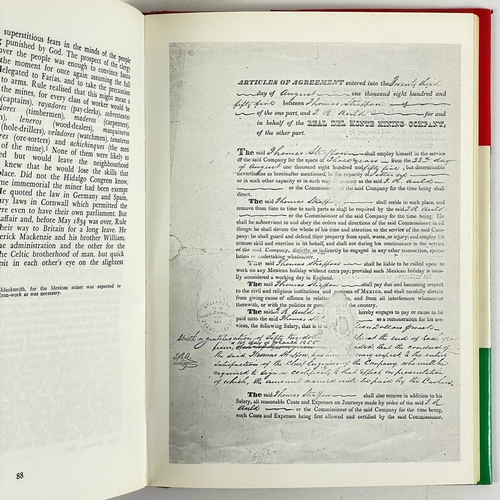 superstitious fears in the minds of the people
punished by God. The prospect of the clergy
the moment for once again assuming the full
delegated to Farias, and to take Santa
to arms. Rule realised that this might mean a
the mines, for every class of worker would be
(captains), rayadores (pay-clerks), sotomineros
(timbermen), maderos (carpenters),
leneros (wood-dealers), masquineros
(ore-sorters), veladores (watchmen), tenateros
and achichinques (the men
of the mine). None of them were likely to
but would leave the neighbourhood
knew that he would lose the skills that
place. Did not the Hidalgo Congress know,
immemorial the miner had been exempt
He quoted the law in Germany and Spain,
laws in Cornwall which permitted the
were even to have their own parliament. But
affair and, before May 1834 was over, Rule
their way to Britain for a leave. He
Frederick Mackenzie and his brother William.
the administration and the other for the
the Celtic brotherhood of man, but quick
spit in each other's eye on the slightest
blacksmith, for the Mexican miner was expected to
iron-work as was necessary.
88
ARTICLES OF AGREEMENT entered into the Twenty third
day of August one thousand eight hundred and
fifty five between Thomas Straffon of
of the one part, and J. R. Auld for and
in behalf of the REAL DEL MONTE MINING COMPANY,
of the other part.
The said Thomas Straffon shall employ himself in the service
of the said Company for the space of Three years from the 23rd day
of August one thousand eight hundred and fifty five, but determinable
nevertheless as hereinafter mentioned; in the capacity of
or in such other capacity or in such way as the said J. R. Auld
or the Commissioner of the said Company for the time being shall
direct.
The said Thomas Straffon shall reside in such place, and
remove from time to time to such parts as may be required by the said J. R. Auld
or the Commissioner of the said Company for the time being. He
shall be subservient to and obey the orders and directions of the said Commissioner in all
things: he shall devote the whole of his time and attention to the service of the said Com-
pany: he shall guard and defend their property from spoil, waste, or injury; and employ his
utmost skill and exertion in its behalf, and shall not during his continuance in the service
of the said Company, either directly or indirectly be engaged in any other transaction, spec-
ulation or undertaking whatsoever.
The said Thomas Straffon shall be liable to be called upon to
work on any Mexican Holiday without extra pay; provided such Mexican Holiday is usually
considered a working day in England.
The said Thomas Straffon shall pay due and becoming respect
to the civil and religious institutions, and customs of MEXICO, and shall carefully abstain
from giving cause of offence in relation thereto, and from all interference whatsoever
with the political parties or proceedings of the country.
The said J. R. Auld hereby engages to pay or cause to be
paid unto the said Thomas Straffon as a remuneration for his ser-
vices, the following Salary, that is to say, Dollars per week.
With a gratification of Fifty five dollars at the end of each year
decided that the conduct of
the said Thomas Straffon, has been in every respect to the entire
satisfaction of the Chief Engineer of the Company, who will be
required to sign a certificate to that effect on presentation
of which, the amount named will be paid by the Cashier
J.R.A.
The said Thomas Straffon shall also receive in addition to his
Salary, all reasonable Costs and Expenses on Journeys made by order of the said J. R.
Auld or the Commissioner of the said Company for the time being,
such Costs and Expenses being first allowed and certified by the said Commissioner.